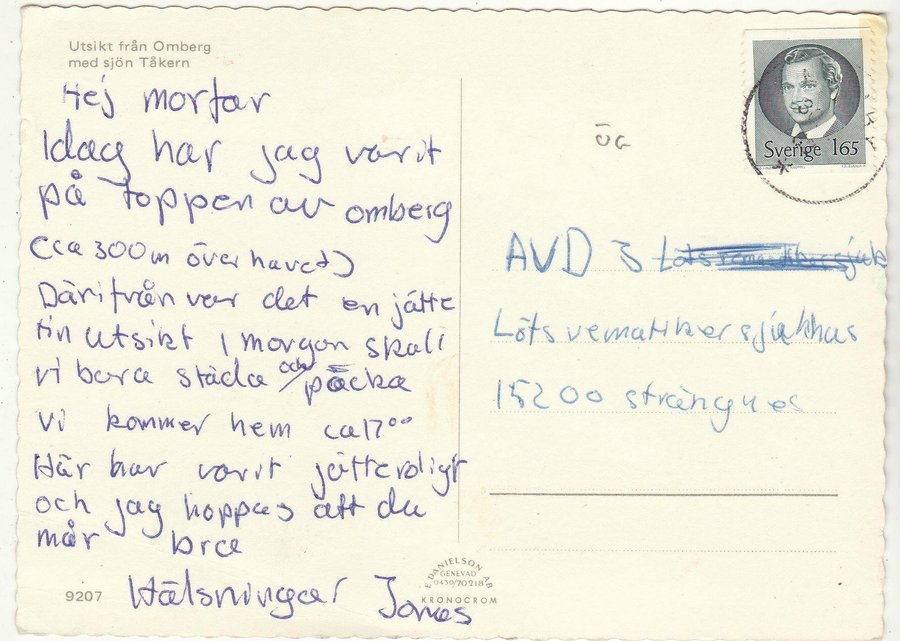 Utsikt från Omberg
med sjön Tåkern
Hej morfar
Idag har jag varit
på toppen av omberg
(ca 300m över havet)
Därifrån var det en jätte
fin utsikt I morgon skall
vi bara städa och packa
vi kommer hem ca 17⁰⁰
Här har varit jätteroligt
och jag hoppas att du
mår bra
Hälsningar Jonas
9207
E DANIELSON AB
GENEVAD
0430/70218
KRONOCROM
Sverige 165
ÖG
AVD 3
Löts vematiker sjukhus
15200 strängnes